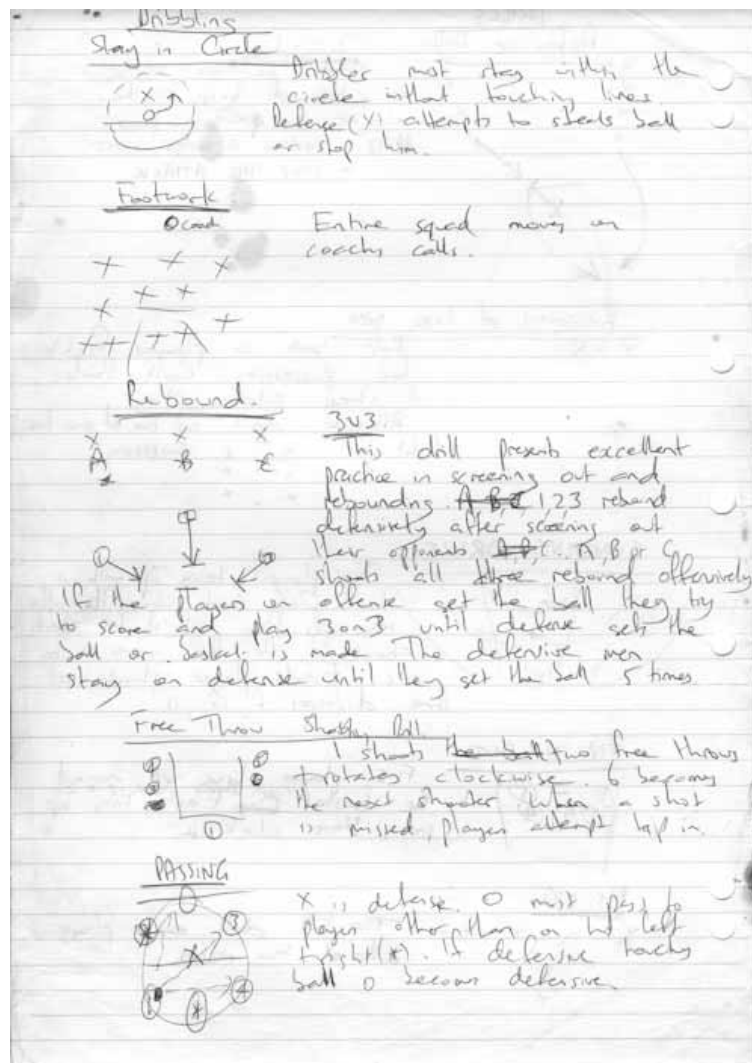 Dribbling
Stay in Circle
Dribbler must stay within the
circle without touching lines
X
O
Defense (Y) attempts to steals ball
or stop him.
Footwork
O coach
Entire squad moves on
coachs calls.
X X X
X X X X
X X X X
Rebound.
3v3
X X X
A B C
This drill presents excellent
practice in screening out and
rebounding. A B C 1,2,3 rebound
defensively after screening out
their opponents A, B, C. A, B or C
shoots all three rebound offensively
If the players on offense get the ball they try
to score and play 3 on 3 until defense gets the
ball or basket is made The defensive men
stay on defense until they get the ball 5 times.
Free Throw Shooting Drill
1 shoots the ball two free throws
+ rotates clockwise. 6 becomes
the next shooter. When a shot
1
is missed, players attempt tap in.
PASSING
X is defense. O must pass to
3
player other than on his left
X
+ right (*). If defensive touchs
ball O becomes defensive.